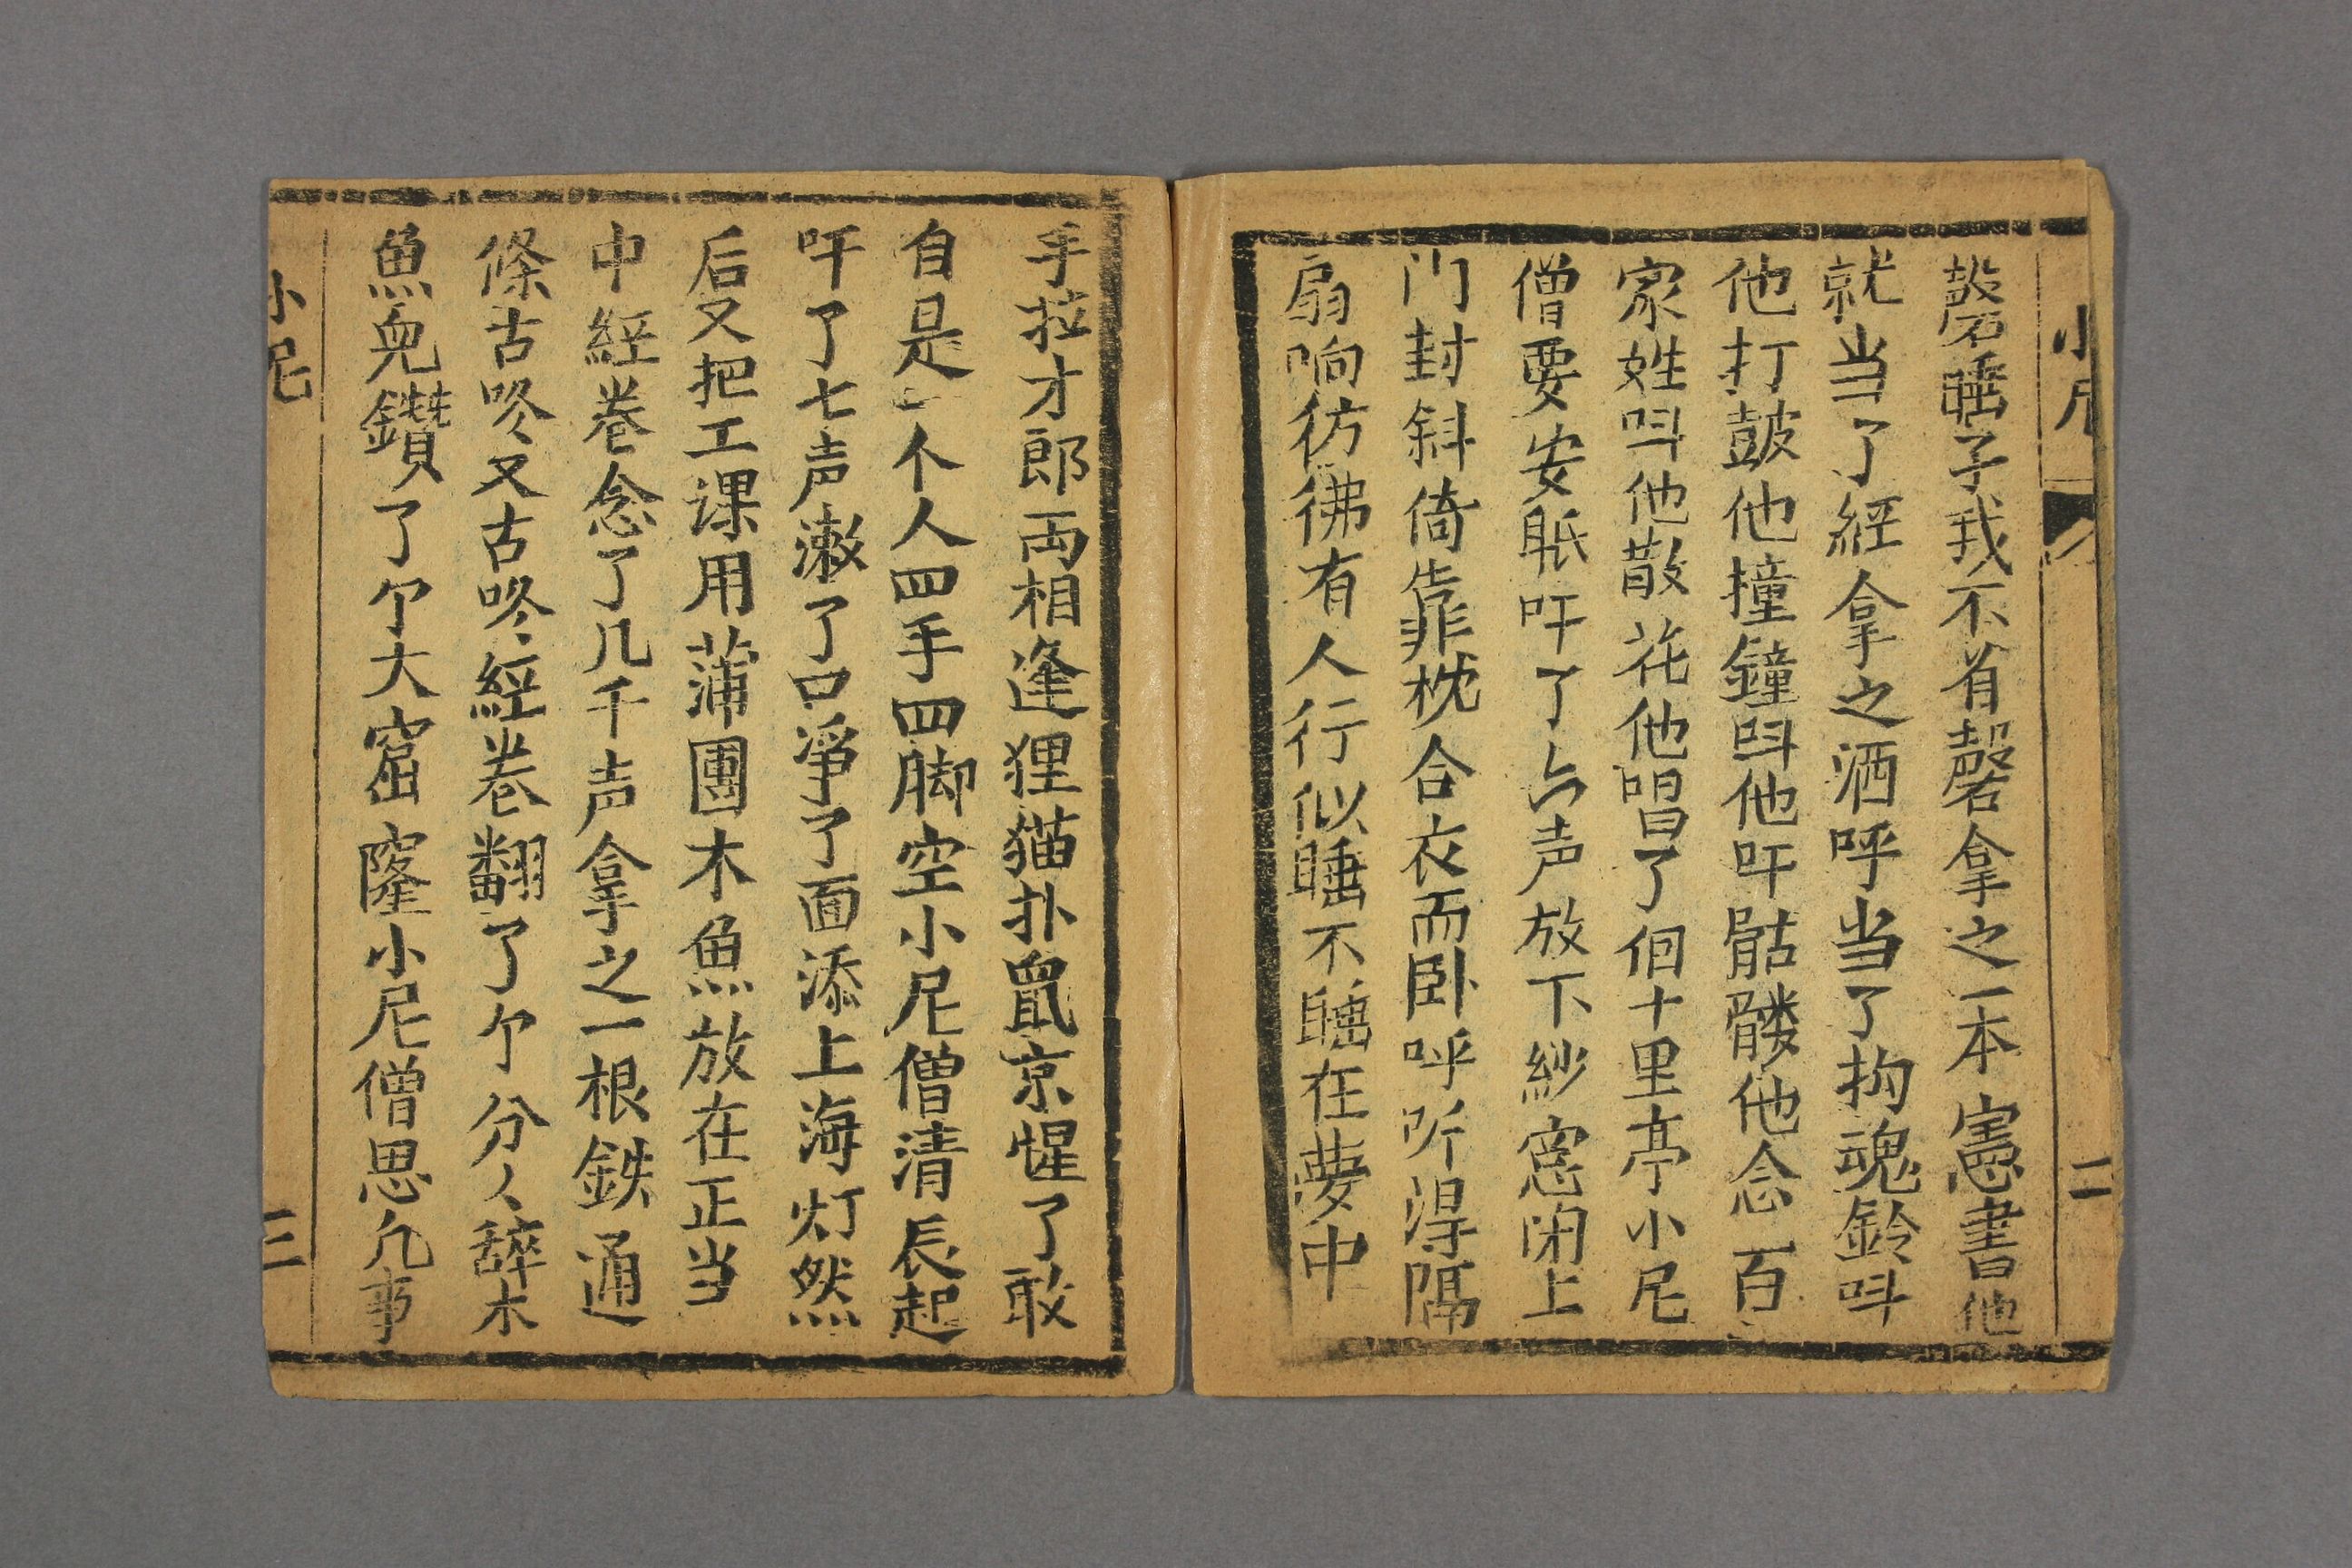 小尼 二
磬睡子我不肯磬拿之一本憲書他
就当了經拿之洒呼当了拘魂鈴呌
他打鼓他撞鐘呌他吁骷髅他念百
家姓呌他散花他唱了個十里亭小尼
僧要安眠吁了亽声放下紗窓闭上
门封斜倚靠枕合衣而卧呼听淂隔
扇响彷彿有人行似睡不睡在夢中
手拉才郎両相逢狸猫扑鼠京惺了敢
自是一个人四手四脚空小尼僧清辰起
吁了七声漱了口淨了面添上海灯然
后又把工课用蒲團木魚放在正当
中經卷念了几千声拿之一根鉄通
條古咚又古咚經卷翻了个分〻辞木
魚兒鑽了个大窟窿小尼僧思凢事
小尼 三